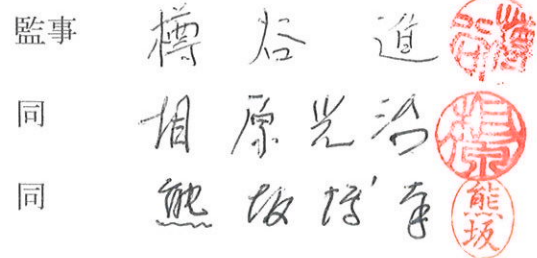 監事 樽谷 進 樽谷
同 相原光治 相原
同 熊坂博幸 熊坂